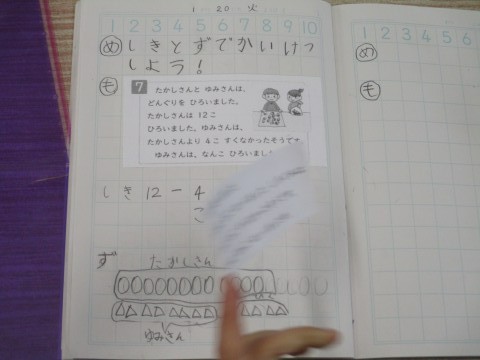 1 20 火
1 2 3 4 5 6 7 8 9 10
め しきとずでかいけつ
しよう!
も
7 たかしさんと ゆみさんは、
どんぐりを ひろいました。
たかしさんは 12こ
ひろいました。ゆみさんは、
たかしさんより 4こ すくなかったそうです
ゆみさんは、なんこ ひろいました
しき 12-4
こ
ず たかしさん
ゆみさん
1 2 3 4 5 6
め
も